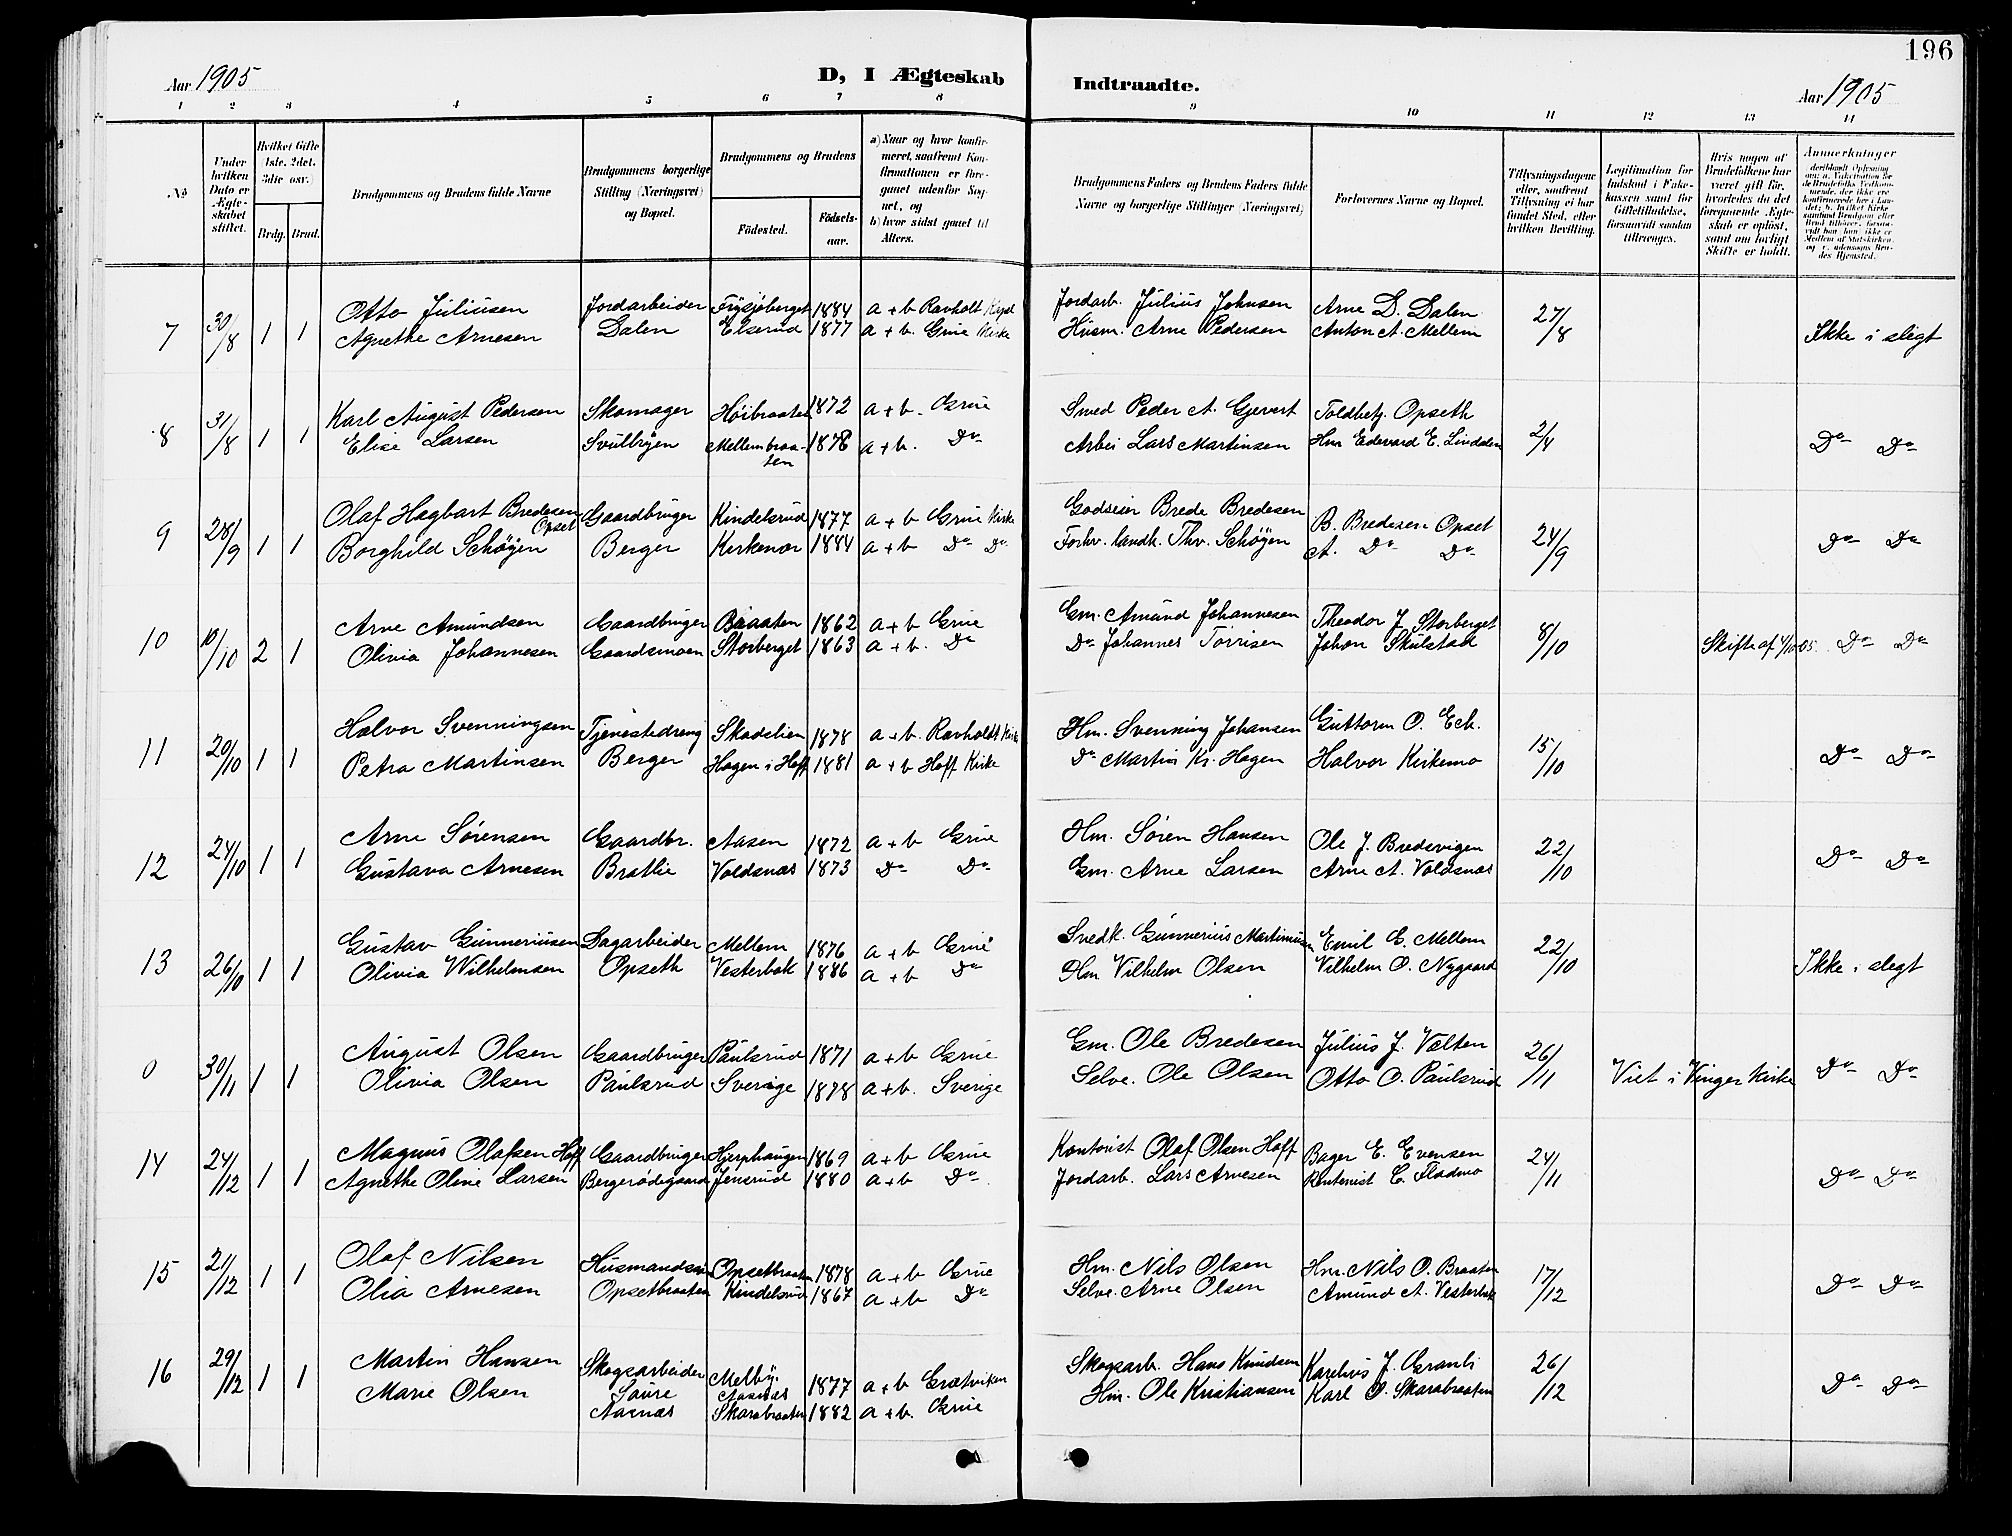 196
Aar 1905
D, I Ægteskab
Indtraadte.
Aar 1905
1 2 3 4 5 6 7 8 9 10 11 12 13 14
No
Under hvilken Dato er Ægteskabet stiftet.
Hvilket Gifte (1ste, 2det, 3die osv.)
Brdg. Brud.
Brudgommens og Brudens fulde Navne
Brudgommens borgerlige Stilling (Næringsvei) og Bopæl.
Brudgommens og Brudens
Fødested.
Fødselsaar.
a) Naar og hvor konfirmeret, saafremt Konfirmationen er foregaaet udenfor Sognet, og
b) hvor sidst gaaet til Alters.
Brudgommens Faders og Brudens Faders fulde Navne og borgerlige Stillinger (Næringsvei)
Forlovernes Navne og Bopæl.
Tillysningsdagene eller, saafremt Tillysning ei har fundet Sted, efter hvilken Bevilling.
Legitimation for Indskud i Enkekassen samt for Giftetilladelse, forsaavidt saadan tiltrænges.
Hvis nogen af Brudefolkene har været gift før, hvorledes da det foregaaende Ægteskab er opløst, samt om lovligt Skifte er holdt.
Anmærkninger
7 30/8 1 1 Otto Juliusen Jordarbeider Frysjøberget 1884 a + b Ravholt Kapel Jordarb. Julius Johnsen Arne D. Dalen 27/8 Ikke i slegt
Agnethe Arnesen Dalen Elserud 1877 a + b. Grue Kirke Husm. Arne Pedersen Anton A. Mellem
8 31/8 1 1 Karl August Pedersen Skomager Høibraaten 1872 a + b. Grue Smed Peder A. Gjevert Toldbetj. Opseth 2/4 Do Do
Elise Larsen Svulbyen Mellembraaten 1878 a + b. Do Arbei Lars Martinsen Hm Edevard E. Linddalen
9 28/9 1 1 Olaf Hagbart Bredesen Opset Gaardbruger Kindelsrud 1877 a + b Grue Kirke Godseier Brede Bredesen B. Bredesen Opset 24/9 Do Do
Borghild Schøyen Berger Kirkenær 1884 a + b Do Do Forhv. landh. Thv. Schøyen A. Do Do
10 10/10 2 1 Arne Amundsen Gaardbruger Braaten 1862 a + b Grue Gm. Amund Johannesen Theodor J. Storberget 8/10 Skifte af 4/10 05. Do Do
Olivia Johannesen Gaardsmoen Storberget 1863 a + b. Do Do Johannes Torrisen Johan Skulstad
11 20/10 1 1 Halvor Svenningsen Tjenestedreng Skadslien 1878 a + b. Ravholdt Kirke Hm. Svenning Johansen Guttorm O. Eck. 15/10 Do Do
Petra Martinsen Berger Hagen i Hoff 1881 a + b Hoff Kirke Do Martin Kr. Hagen Halvor Kirkemo
12 24/10 1 1 Arne Sørensen Gaardbr. Aasen 1872 a + b Grue Hm. Søren Hansen Ole J. Bredevigen 22/10 Do Do
Gustava Arnesen Bratlie Voldsnæs 1873 Do Do Gm. Arne Larsen Arne A. Voldsnæs
13 26/10 1 1 Gustav Gunneriusen Dagarbeider Mellem 1876 a + b Grue Snedk. Gunnerius Martinusen Emil E. Mellem 22/10 Ikke i slegt
Olivia Wilhelmsen Opseth Vesterbæk 1886 a + b Do Hm Vilhelm Olsen Vilhelm O. Nygaard
0 30/11 1 1 August Olsen Gaardbruger Paulsrud 1871 a + b Grue Gm. Ole Bredesen Julius J. Velten 26/11 Viet i Vinger Kirke Do Do
Olivia Olsen Paulsrud Sverige 1878 a + b. Sverige Selve. Ole Olsen Otto O. Paulsrud
14 24/12 1 1 Magnus Olafsen Hoff Gaardbruger Hjerphaugen 1869 a + b Grue Kontorist Olaf Olsen Hoff Bager E. Evensen 24/11 Do Do
Agnethe Oline Larsen Bergerødegaard Jensrud 1880 a + b Do Jordarb. Lars Arnesen Kontorist C. Fladmo
15 21/12 1 1 Olaf Nilsen Husmandssøn Opsetbraaten 1878 a + b Grue Hm. Nils Olsen Hm. Nils O. Braaten 17/12 Do Do
Olia Arnesen Opsetbraaten Kindelsrud 1867 a + b Do Selve. Arne Olsen Amund A. Vesterbæk
16 29/12 1 1 Martin Hansen Skogsarbeider Melby. Aasnæs 1877 a + b Grætviken Skogsarb. Hans Knudsen Karelius J. Granli 26/12 Do Do
Marie Olsen Aasnæs Skarabraaten 1882 a + b. Grue Hm. Ole Kristiansen Karl O. Skarabraaten